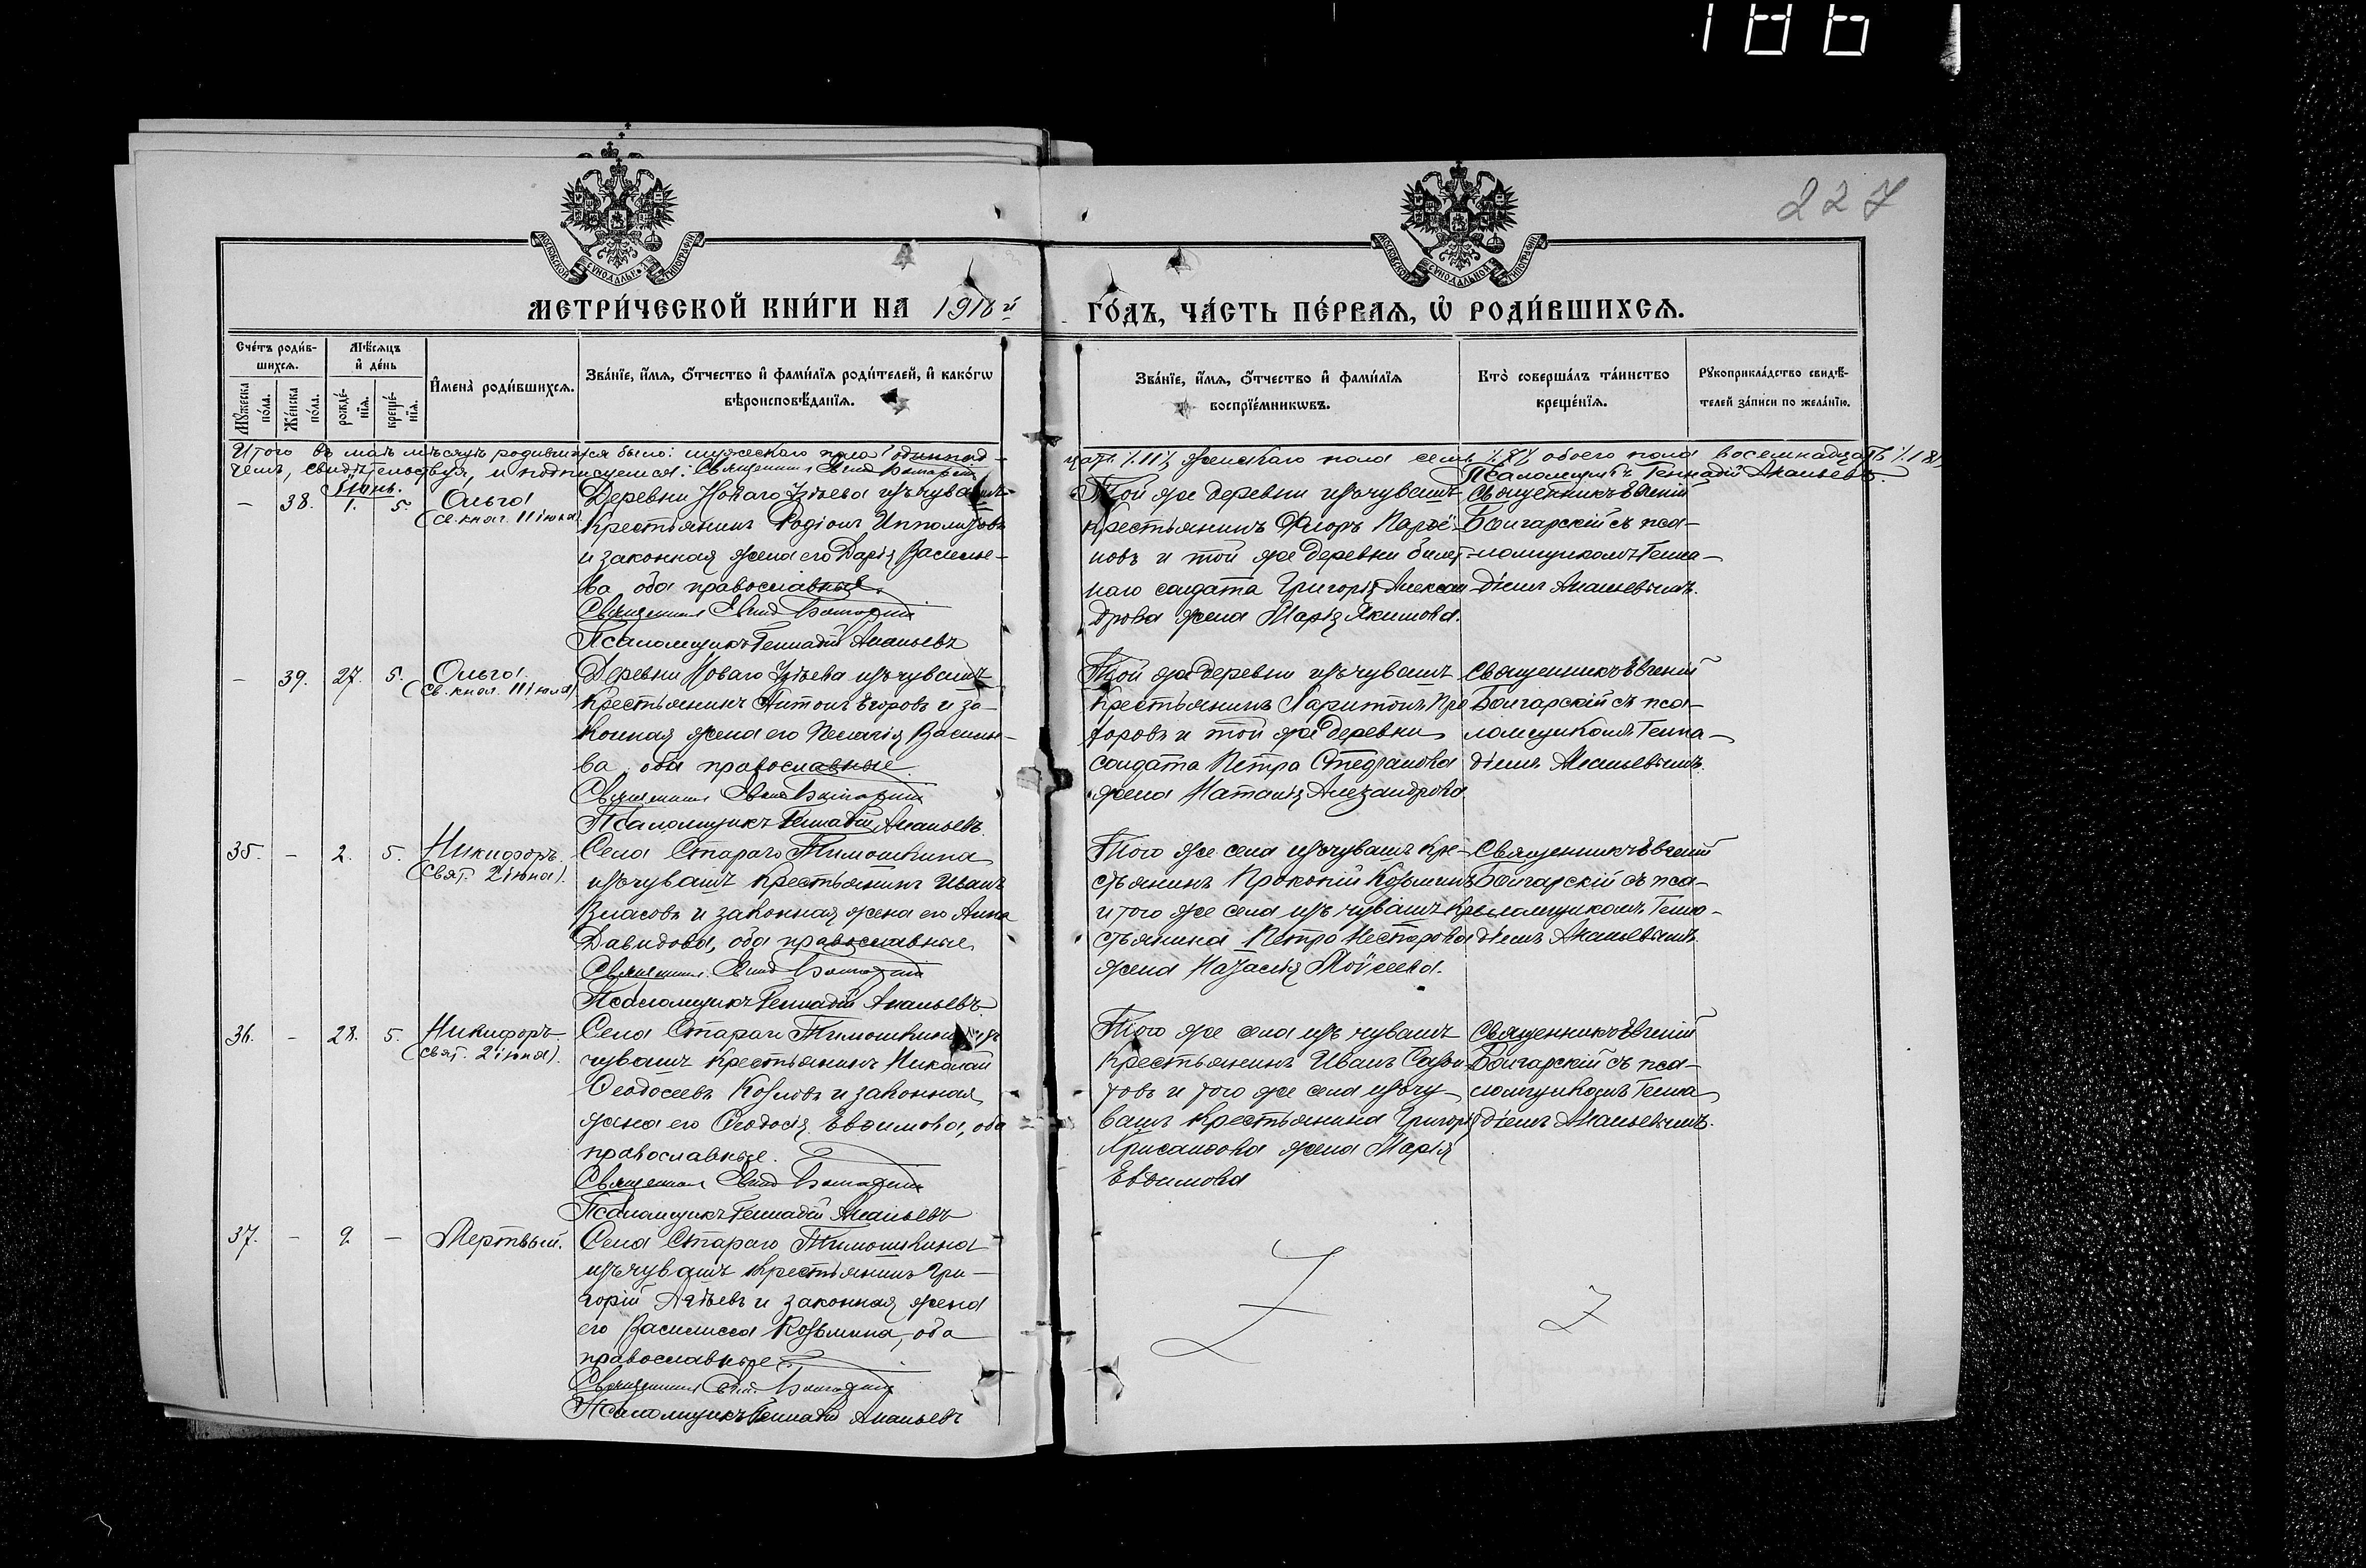 227
МОСКОВСКОЙ СУНОДАЛЬНОЙ ТИПОГРАФІИ
МОСКОВСКОЙ СУНОДАЛЬНОЙ ТИПОГРАФІИ
МЕТРИ́ЧЕСКОЙ КНИ́ГИ НА 1916 й
ГО́ДЪ, ЧА́СТЬ ПЕ́РВАѦ, Ѡ҆ РОДИ́ВШИХСѦ.
Сче́тъ роди́в-
шихсѧ.
Мꙋ́жеска по́ла.
Же́нска по́ла.
Мѣ́сѧцъ
и҆ де́нь
рожде́-
нїѧ.
креще́-
нїѧ.
И҆мена̀ роди́вшихсѧ.
Зва́нїе, и҆́мѧ, ѻ҆́тчество и҆ фами́лїѧ роди́телей, и҆ како́гѡ
вѣроисповѣ́данїѧ.
Зва́нїе, и҆́мѧ, ѻ҆́тчество и҆ фами́лїѧ
воспрїе́мникѡвъ.
Кто̀ соверша́лъ та́инство
креще́нїѧ.
Рꙋкоприкла́дство свидѣ́-
телей за́писи по жела́нїю.
Итого въ маѣ мѣсяцѣ родившихся было: мужескаго пола одиннад-
цать /.11/, женскаго пола семь /.7/, обоего пола восемнадцать /.18/
чемъ, свидѣтельствуя, и подписуемся: Священникъ
Псаломщикъ Геннадій Ананьевъ.
Іюнь.
– 38. 1. 5 Ольга
(св. княг. 11 іюля)
Деревни Новаго изъ чувашъ
Крестьянинъ Родіонъ Ипполитовъ
и законная жена его Дарія Василье-
ва оба православные.
Священникъ
Псаломщикъ Геннадій Ананьевъ
Той же деревни изъ чувашъ
крестьянинъ Флоръ Парѳе-
новъ и той же деревни билет-
наго солдата Григорія Алексан
дрова жена Марія Якимова.
Священникъ Евгеній
Болгарскій съ пса-
ломщикомъ Генна-
діемъ Ананьевымъ.
– 39. 27. 5. Ольга
(св. княг. 11 іюля)
Деревни Новаго изъ чувашъ
Крестьянинъ Антонъ Егоровъ и за-
конная жена его Пелагія Василье-
ва, оба православные
Священникъ
Псаломщикъ Геннадій Ананьевъ.
Той же деревни изъ чувашъ
крестьянинъ Харитонъ
и той же деревни
солдата Петра Стефанова
жена Наталія Александрова.
Священникъ Евгеній
Болгарскій съ пса-
ломщикомъ Генна-
діемъ Ананьевымъ.
35. – 2. 5. Никифоръ.
(Свят. 2 іюня).
Села Стараго Тимошкина
изъ чувашъ крестьянинъ Иванъ
Власовъ и законная жена его Анна
Давидова, оба православные,
Священникъ
Псаломщикъ Геннадій Ананьевъ
Того же села изъ чувашъ кре-
стьянинъ Прокопій Козьминъ
и того же села изъ чувашъ кре-
стьянина Петра Нестерова
жена Моѵсеева.
Священникъ Евгеній
Болгарскій съ пса-
ломщикомъ Генна-
діемъ Ананьевымъ.
36. – 28. 5. Никифоръ
(свят. 2 іюня).
Села Стараго Тимошкина изъ
чувашъ крестьянинъ Николай
Ѳеодосеевъ Козловъ и законная
жена его Ѳеодосія Евѳимова, оба
православные.
Священникъ
Псаломщикъ Геннадій Ананьевъ
Того же села изъ чувашъ
крестьянинъ Иванъ
и того же села изъ чу-
вашъ крестьянина Григорія
Хрисанѳова жена Марія
Евѳимова
Священникъ Евгеній
Болгарскій съ пса-
ломщикомъ Генна-
діемъ Ананьевымъ.
37. – 9. – Мертвый.
Села Стараго Тимошкина
изъ чувашъ крестьянинъ Гри-
горій и законная жена
его Василисса Козьмина, оба
православные
Священникъ
Псаломщикъ Геннадій Ананьевъ